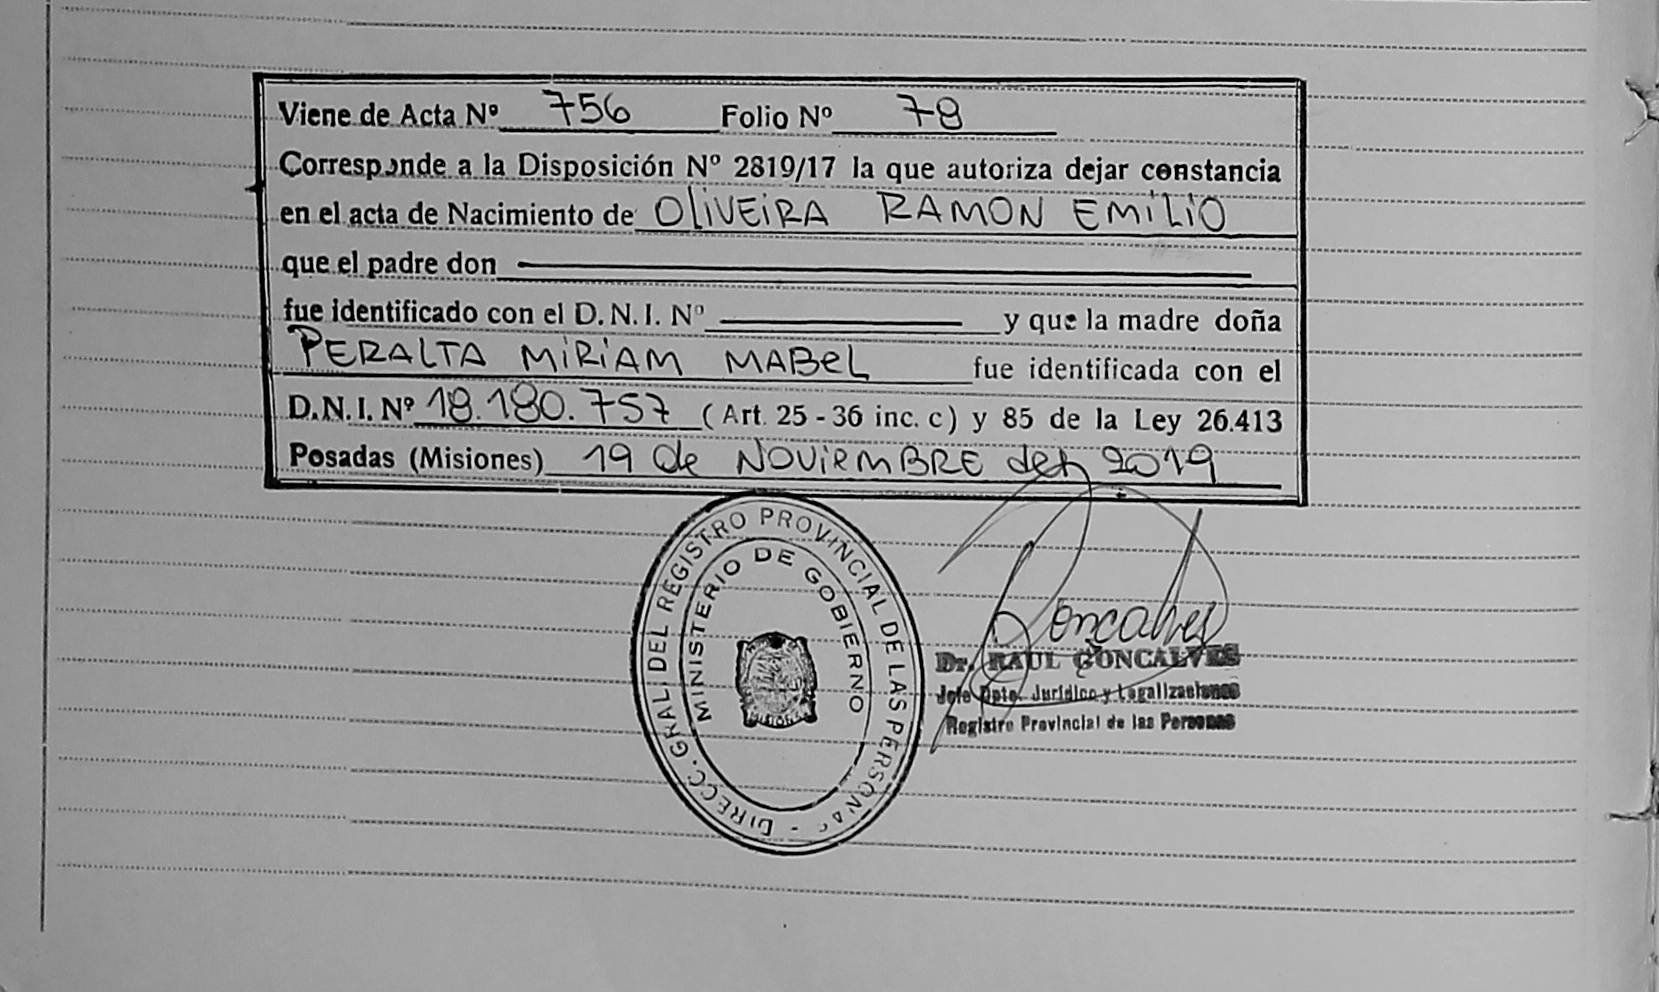 Viene de Acta Nº 756 Folio Nº 78
Corresponde a la Disposición Nº 2819/17 la que autoriza dejar constancia
en el acta de Nacimiento de OLIVEIRA RAMON EMILIO
que el padre don
fue identificado con el D.N.I. Nº y que la madre doña
PERALTA MIRIAM MABEL fue identificada con el
D.N.I. Nº 18.180.757 (Art. 25 - 36 inc. c) y 85 de la Ley 26.413
Posadas (Misiones) 19 de NOVIEMBRE del 2019
DIRECC. GRAL. DEL REGISTRO PROVINCIAL DE LAS PERSONAS -
MINISTERIO DE GOBIERNO
Goncalves
Dr. RAUL GONCALVES
Jefe Dpto. Jurídico y Legalizaciones
Registro Provincial de las Personas